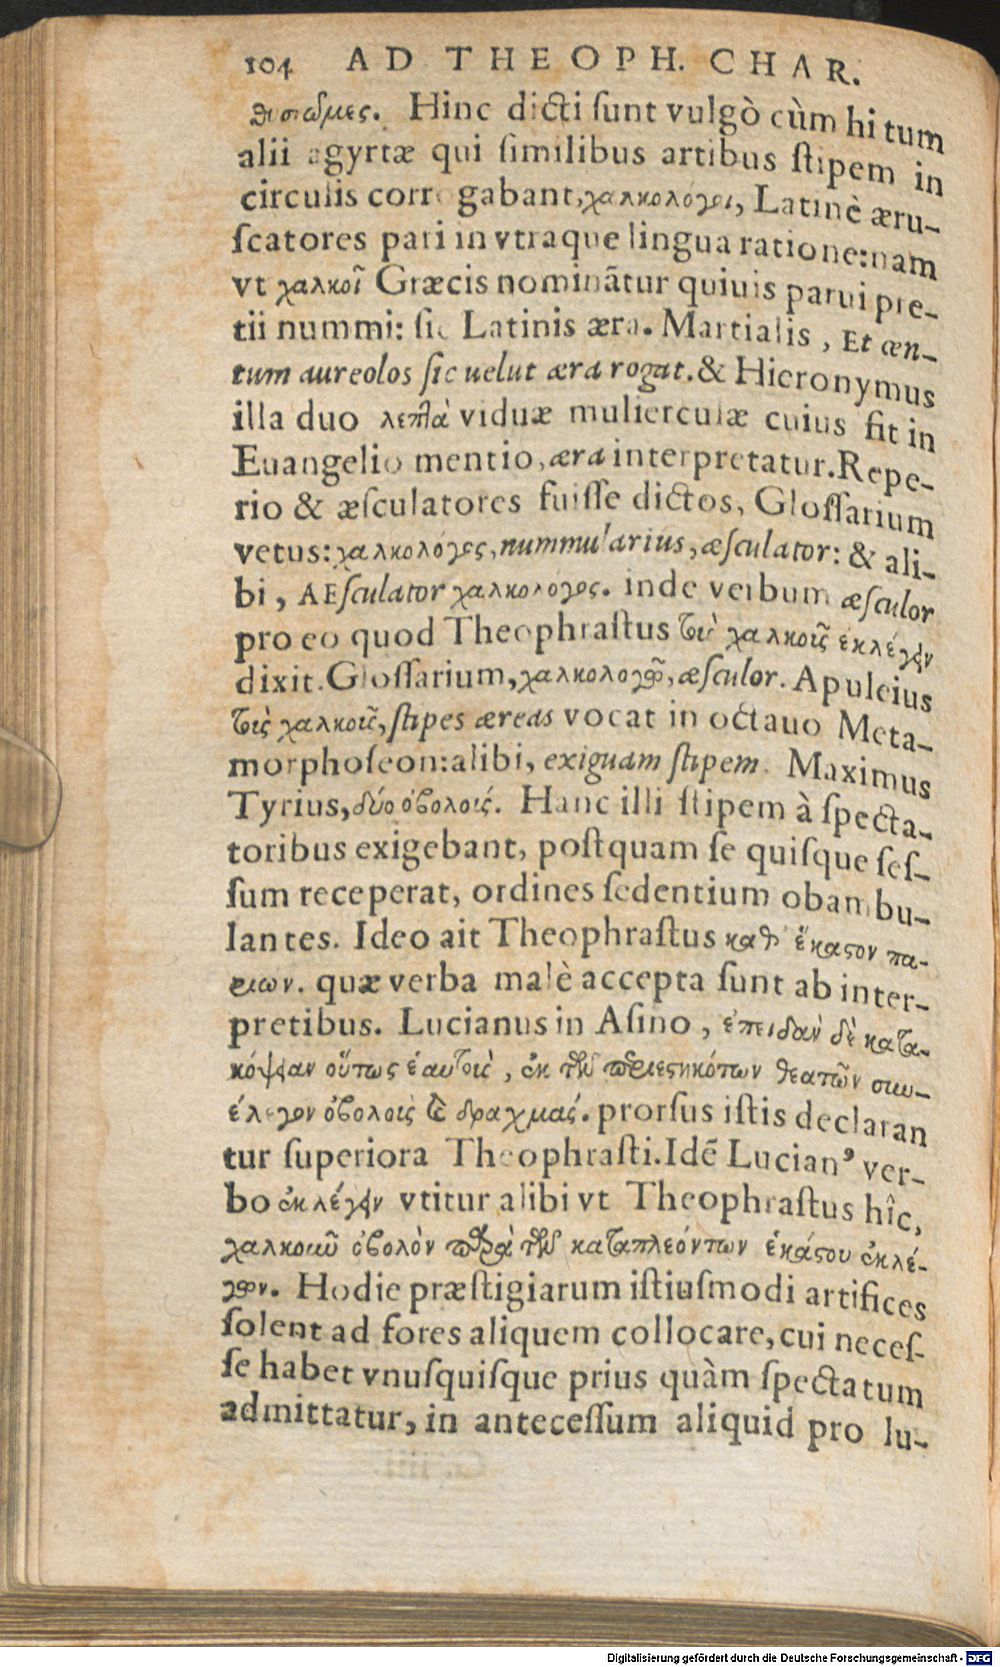 104 AD THEOPH. CHAR.
Hinc dicti sunt vulgò cùm hi tum
alii agyrtæ qui similibus artibus stipem in
circulis corrogabant, χαλκολόγοι, Latinè æru-
scatores pari in vtraque lingua ratione: nam
vt χαλκοῖ Græcis nominātur quiuis parui pre-
tii nummi: sic Latinis æra. Martialis, Et cen-
tum aureolos sic uelut æra rogat. & Hieronymus
illa duo λεπτὰ viduæ mulierculæ cuius fit in
Euangelio mentio, æra interpretatur. Repe-
rio & æsculatores fuisse dictos, Glossarium
vetus: χαλκολόγος, nummularius, æsculator: & ali-
bi, AEsculator χαλκολόγος. inde verbum æsculor
pro eo quod Theophrastus τοὺς χαλκοῦς ἐκλέγειν
dixit. Glossarium, χαλκολογῶ, æsculor. Apuleius
τοὺς χαλκοῦς, stipes æreas vocat in octauo Meta-
morphoseon: alibi, exiguam stipem. Maximus
Tyrius, δύο ὀβολοῖς. Hanc illi stipem à specta-
toribus exigebant, postquam se quisque ses-
sum receperat, ordines sedentium obambu-
lantes. Ideo ait Theophrastus καθ' ἕκαστον πα-
ριων. quæ verba malè accepta sunt ab inter-
pretibus. Lucianus in Asino, ἐπειδὰν δὲ κατα-
κόψειαν οὕτως ἑαυτοὺς, ἐκ τῶν περιεστηκότων θεατῶν συν-
έλεγον ὀβολοὺς καὶ δραχμάς. prorsus istis declaran
tur superiora Theophrasti. Idē Lucianꝰ ver-
bo ἐκλέγειν vtitur alibi vt Theophrastus hîc,
χαλκοῦν ὀβολὸν παρὰ τῶν καταπλεόντων ἑκάστου ἐκλέ-
γων. Hodie præstigiarum istiusmodi artifices
solent ad fores aliquem collocare, cui neces-
se habet vnusquisque prius quàm spectatum
admittatur, in antecessum aliquid pro lu-
Digitalisierung gefördert durch die Deutsche Forschungsgemeinschaft - DFG